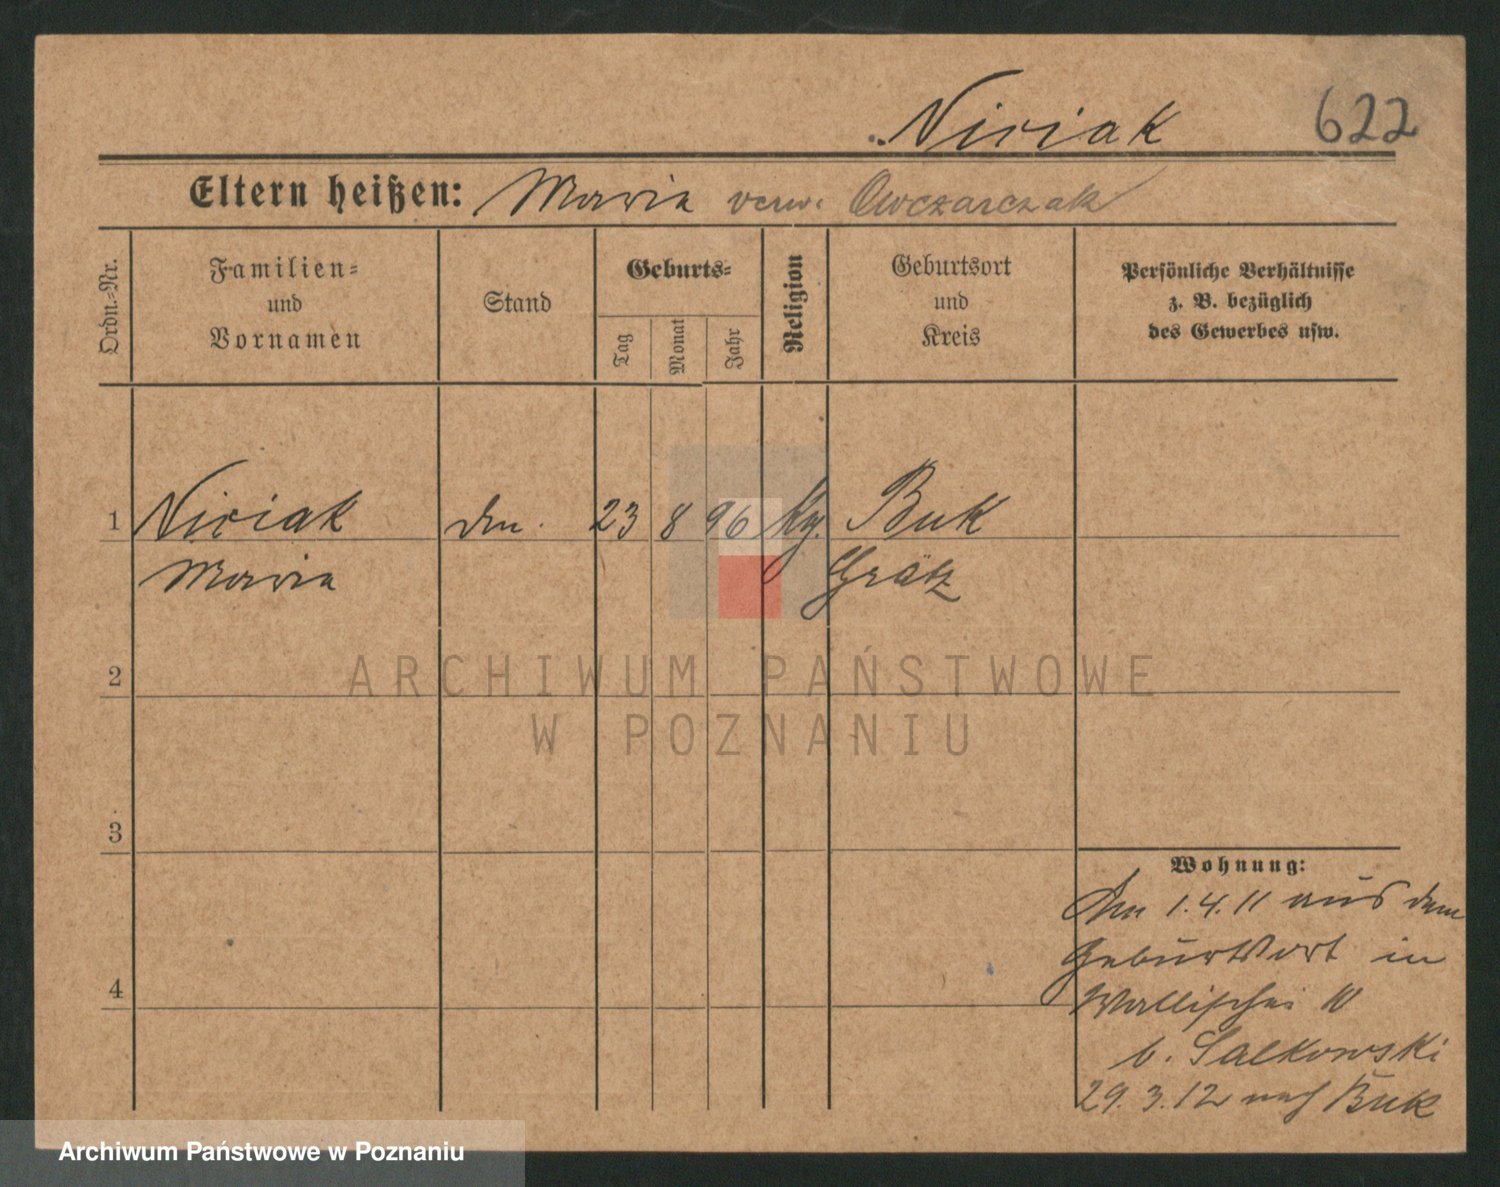 Niriak 622
Eltern heißen: Maria verw. Owczarczak
Ordn.-Nr.
Familien-
und
Vornamen
Stand
Geburts-
Tag
Monat
Jahr
Religion
Geburtsort
und
Kreis
Persönliche Verhältnisse
z. B. bezüglich
des Gewerbes usw.
1 Niriak 23 8 96 Buk
Maria Grätz
2
3
4
Wohnung:
Am 1.4.11 aus dem
Geburtsort in
Wallischei 10
b. Salkowski
29.3.12 nach Buk
ARCHIWUM PAŃSTWOWE
W POZNANIU
Archiwum Państwowe w Poznaniu